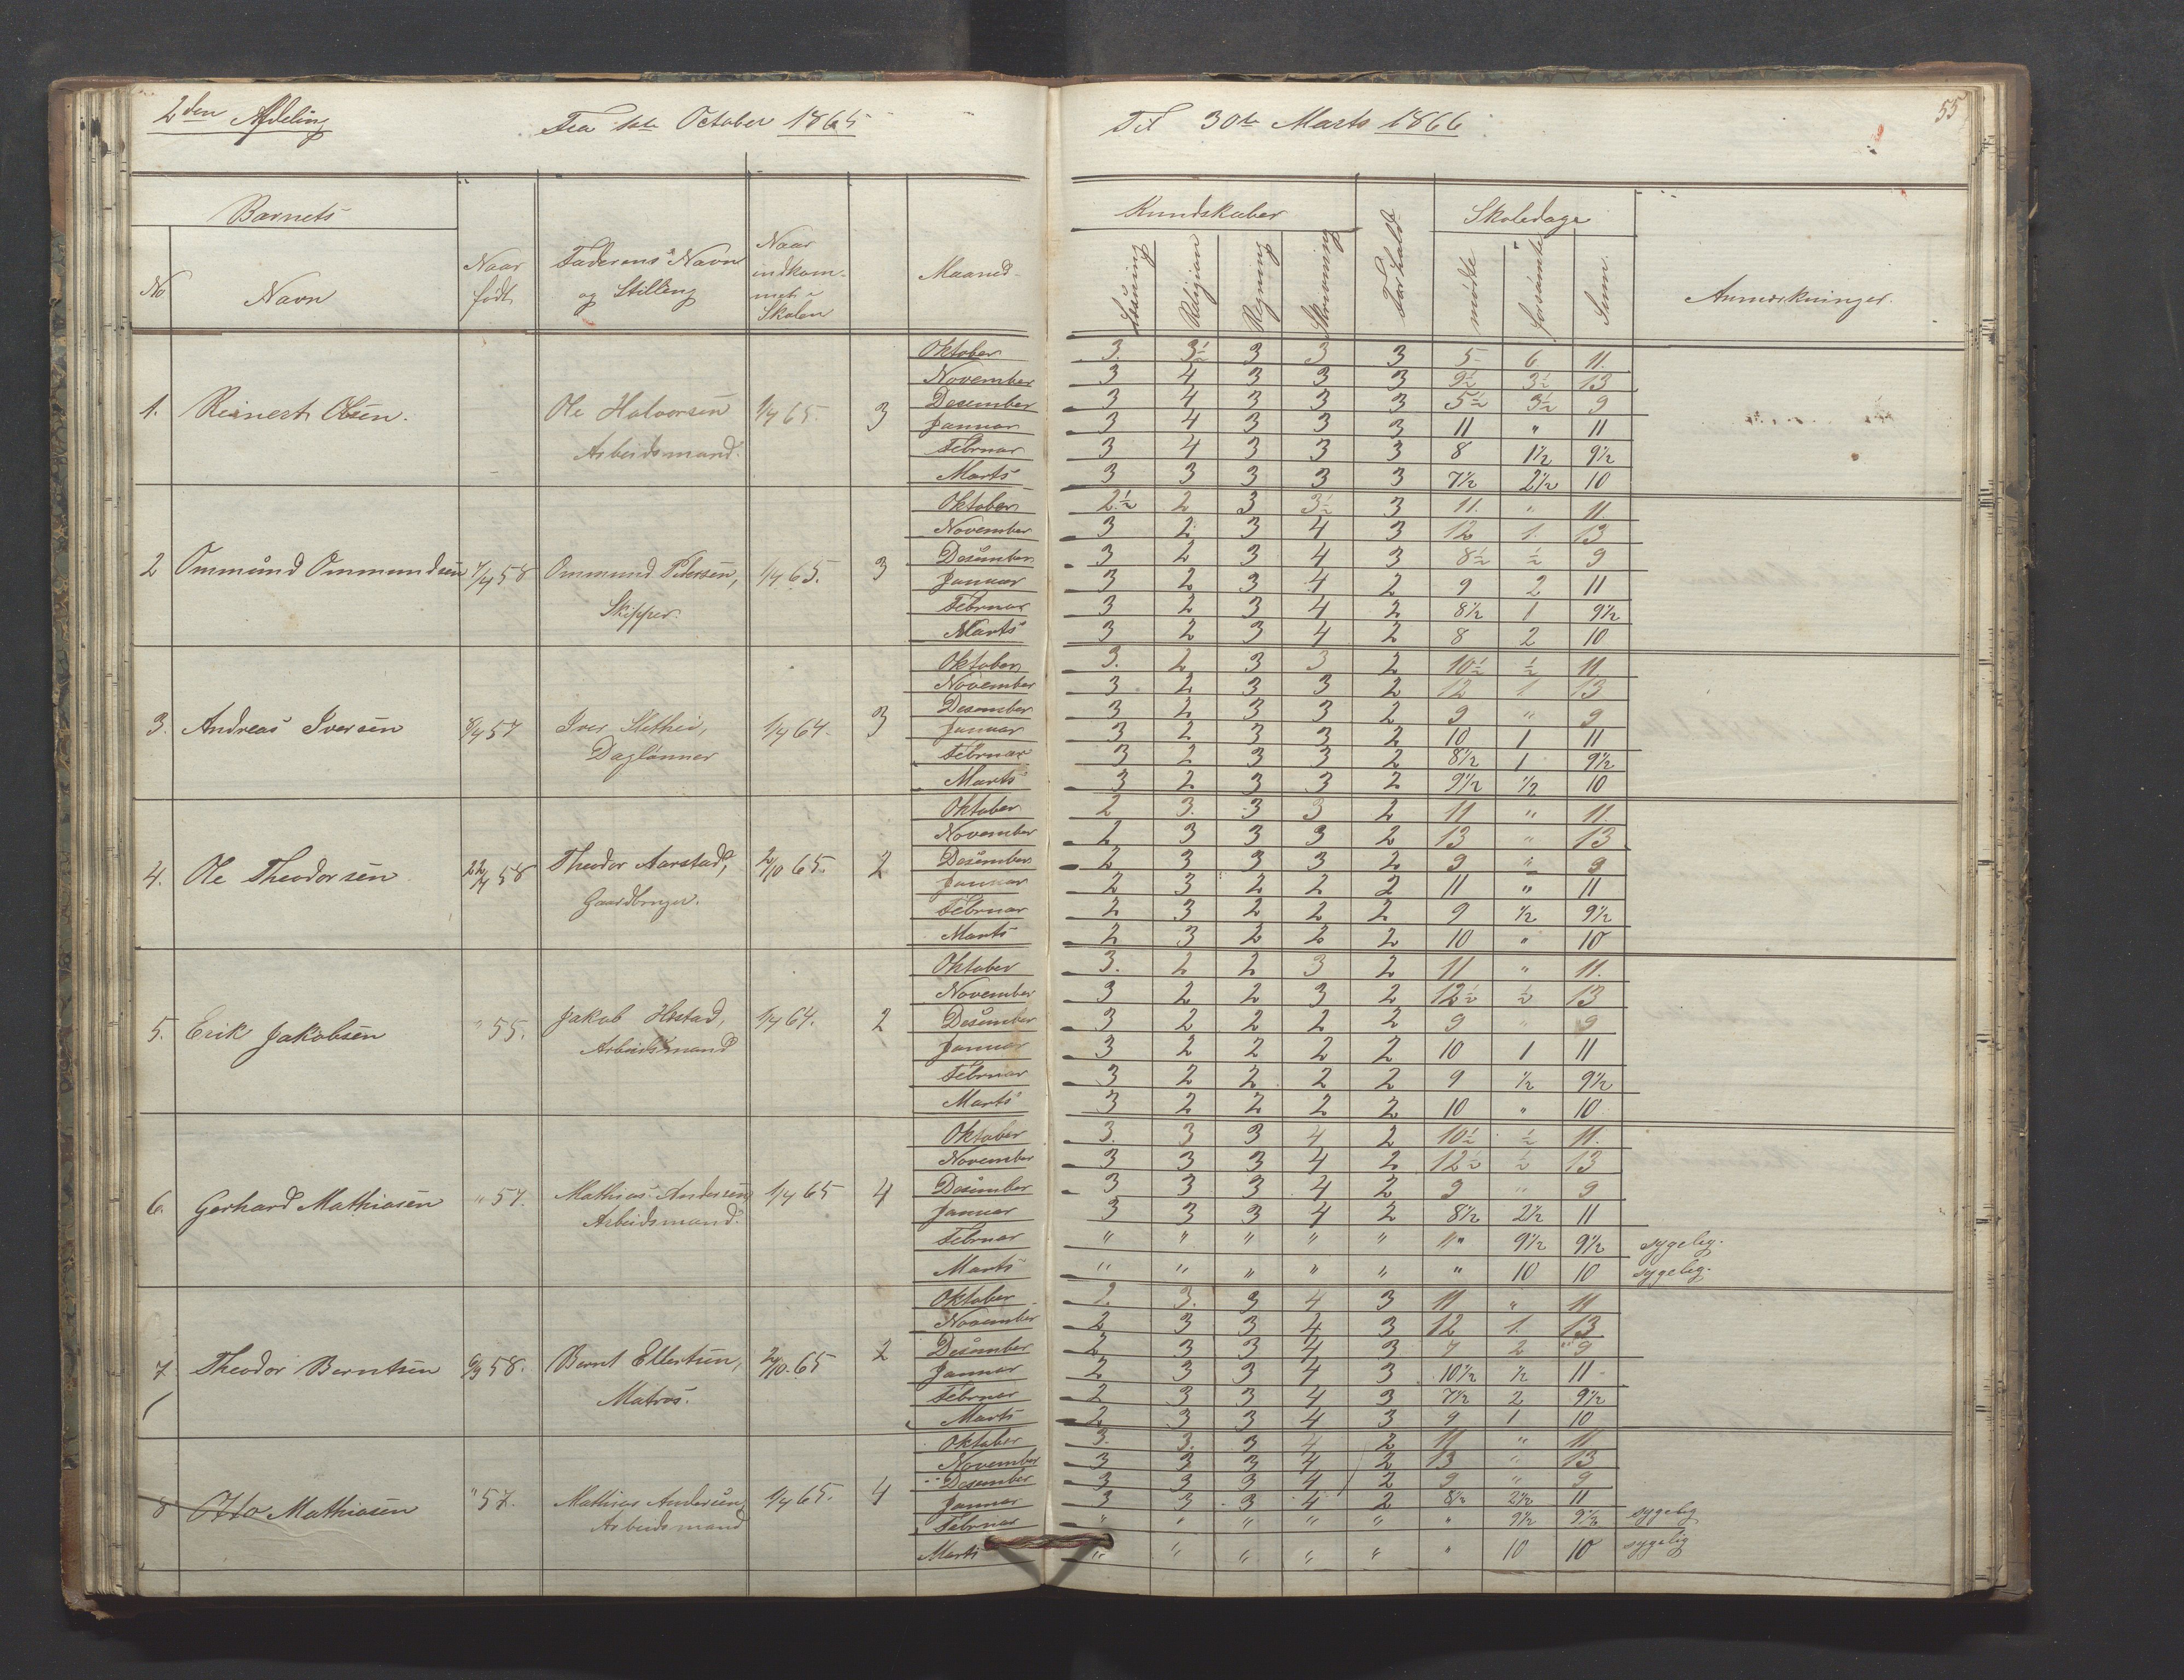 2den Afdeling
Fra 1ste October 1865
Til 30te Marts 1866
55
Barnets
No
Navn
Naar født
Faderens Navn og Stilling
Naar indkommet i Skolen
Maaned
Kundskaber
Læsning
Religion
Regning
Skrivning
Forhold
Skoledage
mødte
forsømte
Sum.
Anmærkninger.
1. Reinert Olsen. Ole Halvorsen Arbeidsmand. 1/4 65. 3
Oktober 3. 3½ 3 3 3 5 6 11.
November 3 4 3 3 3 9½ 3½ 13
Desember 3 4 3 3 3 5½ 3½ 9
Januar 3 4 3 3 3 11 " 11
Februar 3 4 3 3 3 8 1½ 9½
Marts 3 3 3 3 3 7½ 2½ 10
2 Ommund Ommundsen 7/4 58 Ommund Pedersen, Skipper. 1/4 65. 3
Oktober 2½ 2 3 3½ 3 11. " 11.
November 3 2 3 4 3 12 1. 13
Desember 3 2 3 4 3 8½ ½ 9
Januar 3 2 3 4 2 9 2 11
Februar 3 2 3 4 2 8½ 1 9½
Marts 3 2 3 4 2 8 2 10
3. Andreas Iversen 8/4 57 Iver Daglønner 1/4 64. 3
Oktober 3. 2 3 3 2 10½ ½ 11.
November 3 2 3 3 2 12 1 13
Desember 3 2 3 3 2 9 " 9
Januar 3 2 3 3 2 10 1 11
Februar 3 2 3 3 2 8½ 1 9½
Marts 3 2 3 3 2 9½ ½ 10
4. Ole Theodorsen 22/4 58 Theodor Aarstad, Gaardbruger. 2/10 65. 2
Oktober 2 3. 3 3 2 11 " 11.
November 2 3 3 3 2 13 " 13
Desember 2 3 3 3 2 9 " 9
Januar 2 3 2 2 2 11 " 11
Februar 2 3 2 2 2 9 ½ 9½
Marts 2 3 2 2 2 10 " 10
5. Erik Jakobsen " 55. Jakob Arbeidsmand 1/4 64. 2
Oktober 3. 2 2 3 2 11 " 11.
November 3 2 2 3 2 12½ ½ 13
Desember 3 2 2 2 2 9 " 9
Januar 3 2 2 2 2 10 1 11
Februar 3 2 2 2 2 9 ½ 9½
Marts 3 2 2 2 2 10 " 10
6. Gerhard Mathiasen " 57. Mathias Andersen Arbeidsmand. 1/4 65 4
Oktober 3. 3 3 4 2 10½ ½ 11.
November 3 3 3 4 2 12½ ½ 13
Desember 3 3 3 4 2 9 " 9
Januar 3 3 3 4 2 8½ 2½ 11
Februar " " " " " " 9½ 9½ sygelig.
Marts " " " " " " 10 10 sygelig.
7 Theodor Berntsen 6/9 58. Bernt Ellertsen, Matros. 2/10 65 2
Oktober 2. 3. 3 4 3 11 " 11
November 2 3 3 4 3 12 1. 13
Desember 2 3 3 4 3 7 2 9
Januar 2 3 3 4 3 10½ ½ 11
Februar 2 3 3 4 3 7½ 2 9½
Marts 2 3 3 4 3 9 1 10
8 Otto Mathiasen " 57. Mathias Andersen, Arbeidsmand 1/4 65. 4
Oktober 3. 3. 3 4 2 11 " 11
November 3 3 3 4 2 13 " 13
Desember 3 3 3 4 2 9 " 9
Januar 3 3 3 4 2 8½ 2½ 11
Februar " " " " " " 9½ 9½ sygelig
Marts " " " " " " 10 10 sygelig